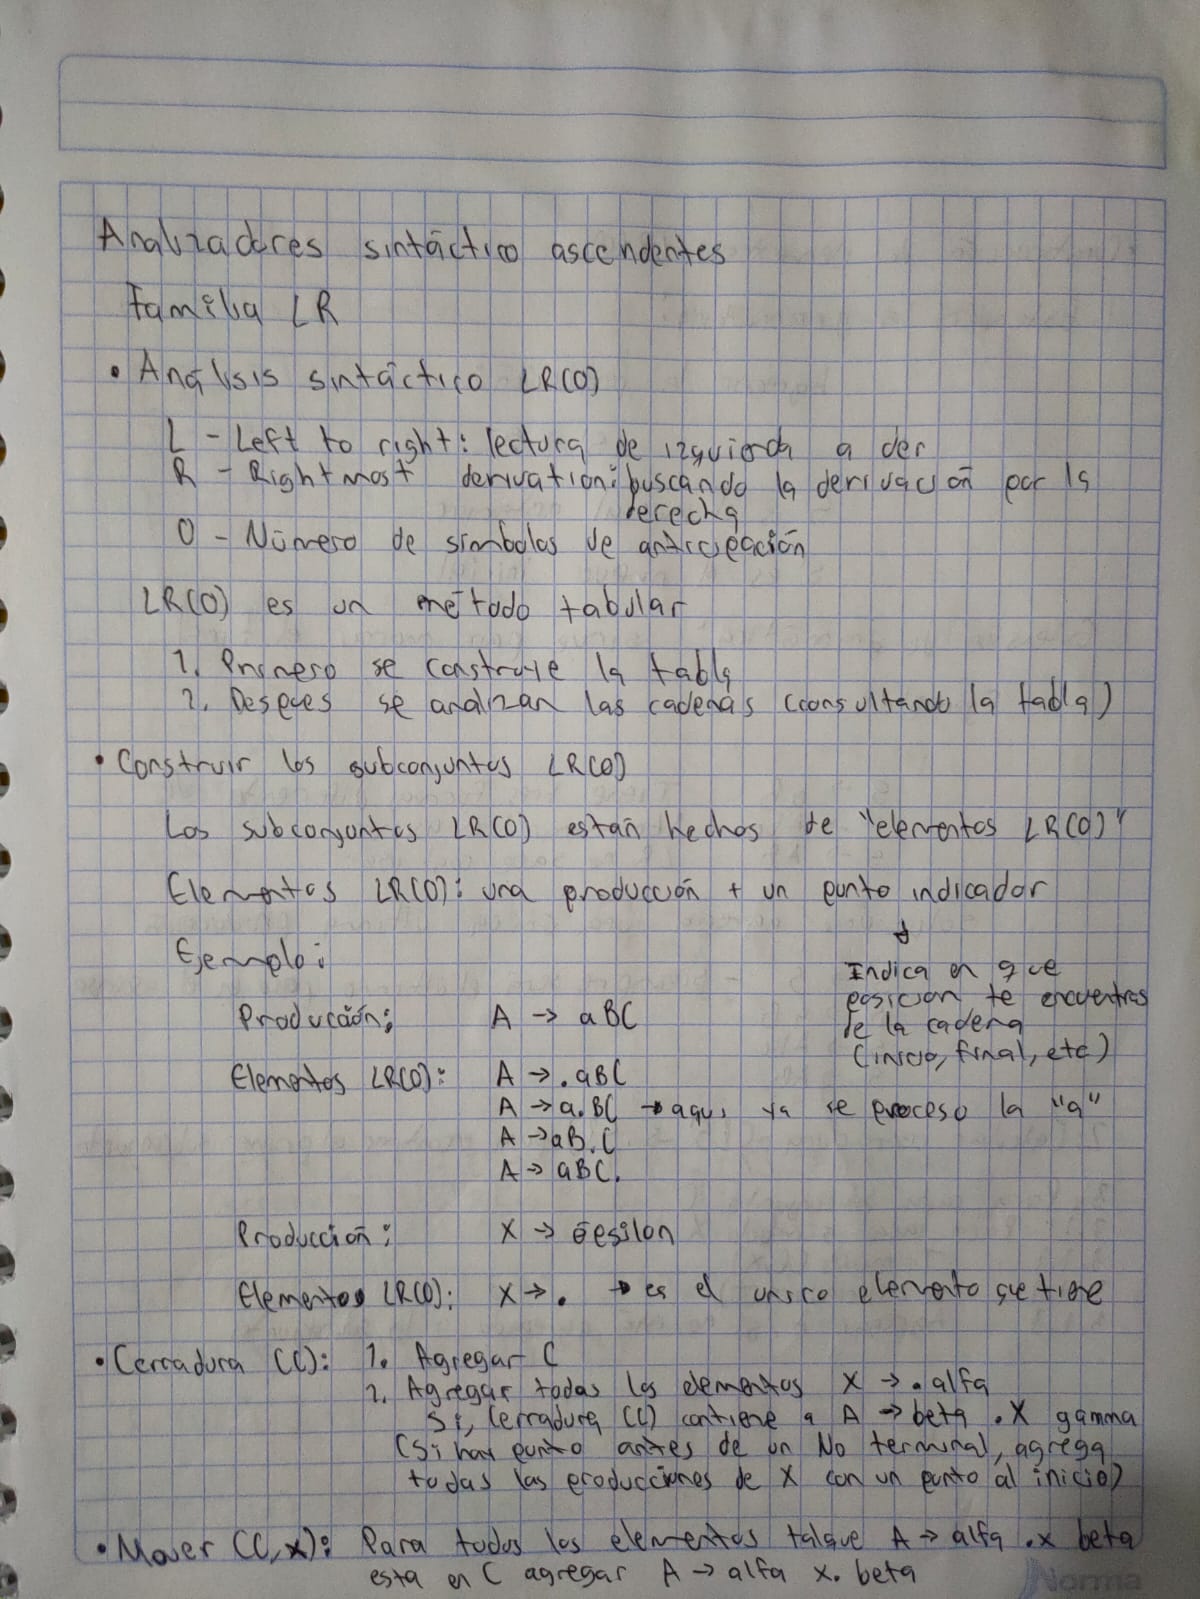 Analizadores sintáctico ascendentes
Familia LR
• Análisis sintáctico LR(0)
L - Left to right: lectura de izquierda a der
R - Rightmost derivation: buscando la derivación por la
derecha
0 - Número de símbolos de anticipación
LR(0) es un método tabular
1. Primero se construye la tabla
2. Despúes se analizan las cadenas (consultando la tabla)
• Construir los subconjuntos LR(0)
Los subconjuntos LR(0) están hechos de "elementos LR(0)"
Elementos LR(0): una producción + un punto indicador
↓
Ejemplo:
Indica en que
posicion te encuentras
de la cadena
(inicio, final, etc)
Producción: A → aBC
Elementos LR(0): A → .aBC
A → a.BC → aqui ya se proceso la "a"
A → aB.C
A → aBC.
Producción: X → épsilon
Elementos LR(0): X → . → es el unico elemento que tiene
• Cerradura (C): 1. Agregar C
2. Agregar todas los elementos X → . alfa
Si, Cerradura (C) contiene a A → beta . X gamma
(Si hay punto antes de un No terminal, agrega
todas las producciones de X con un punto al inicio)
• Mover (C,x): Para todos los elementos talque A → alfa .x beta
esta en C agregar A → alfa x. beta
Norma